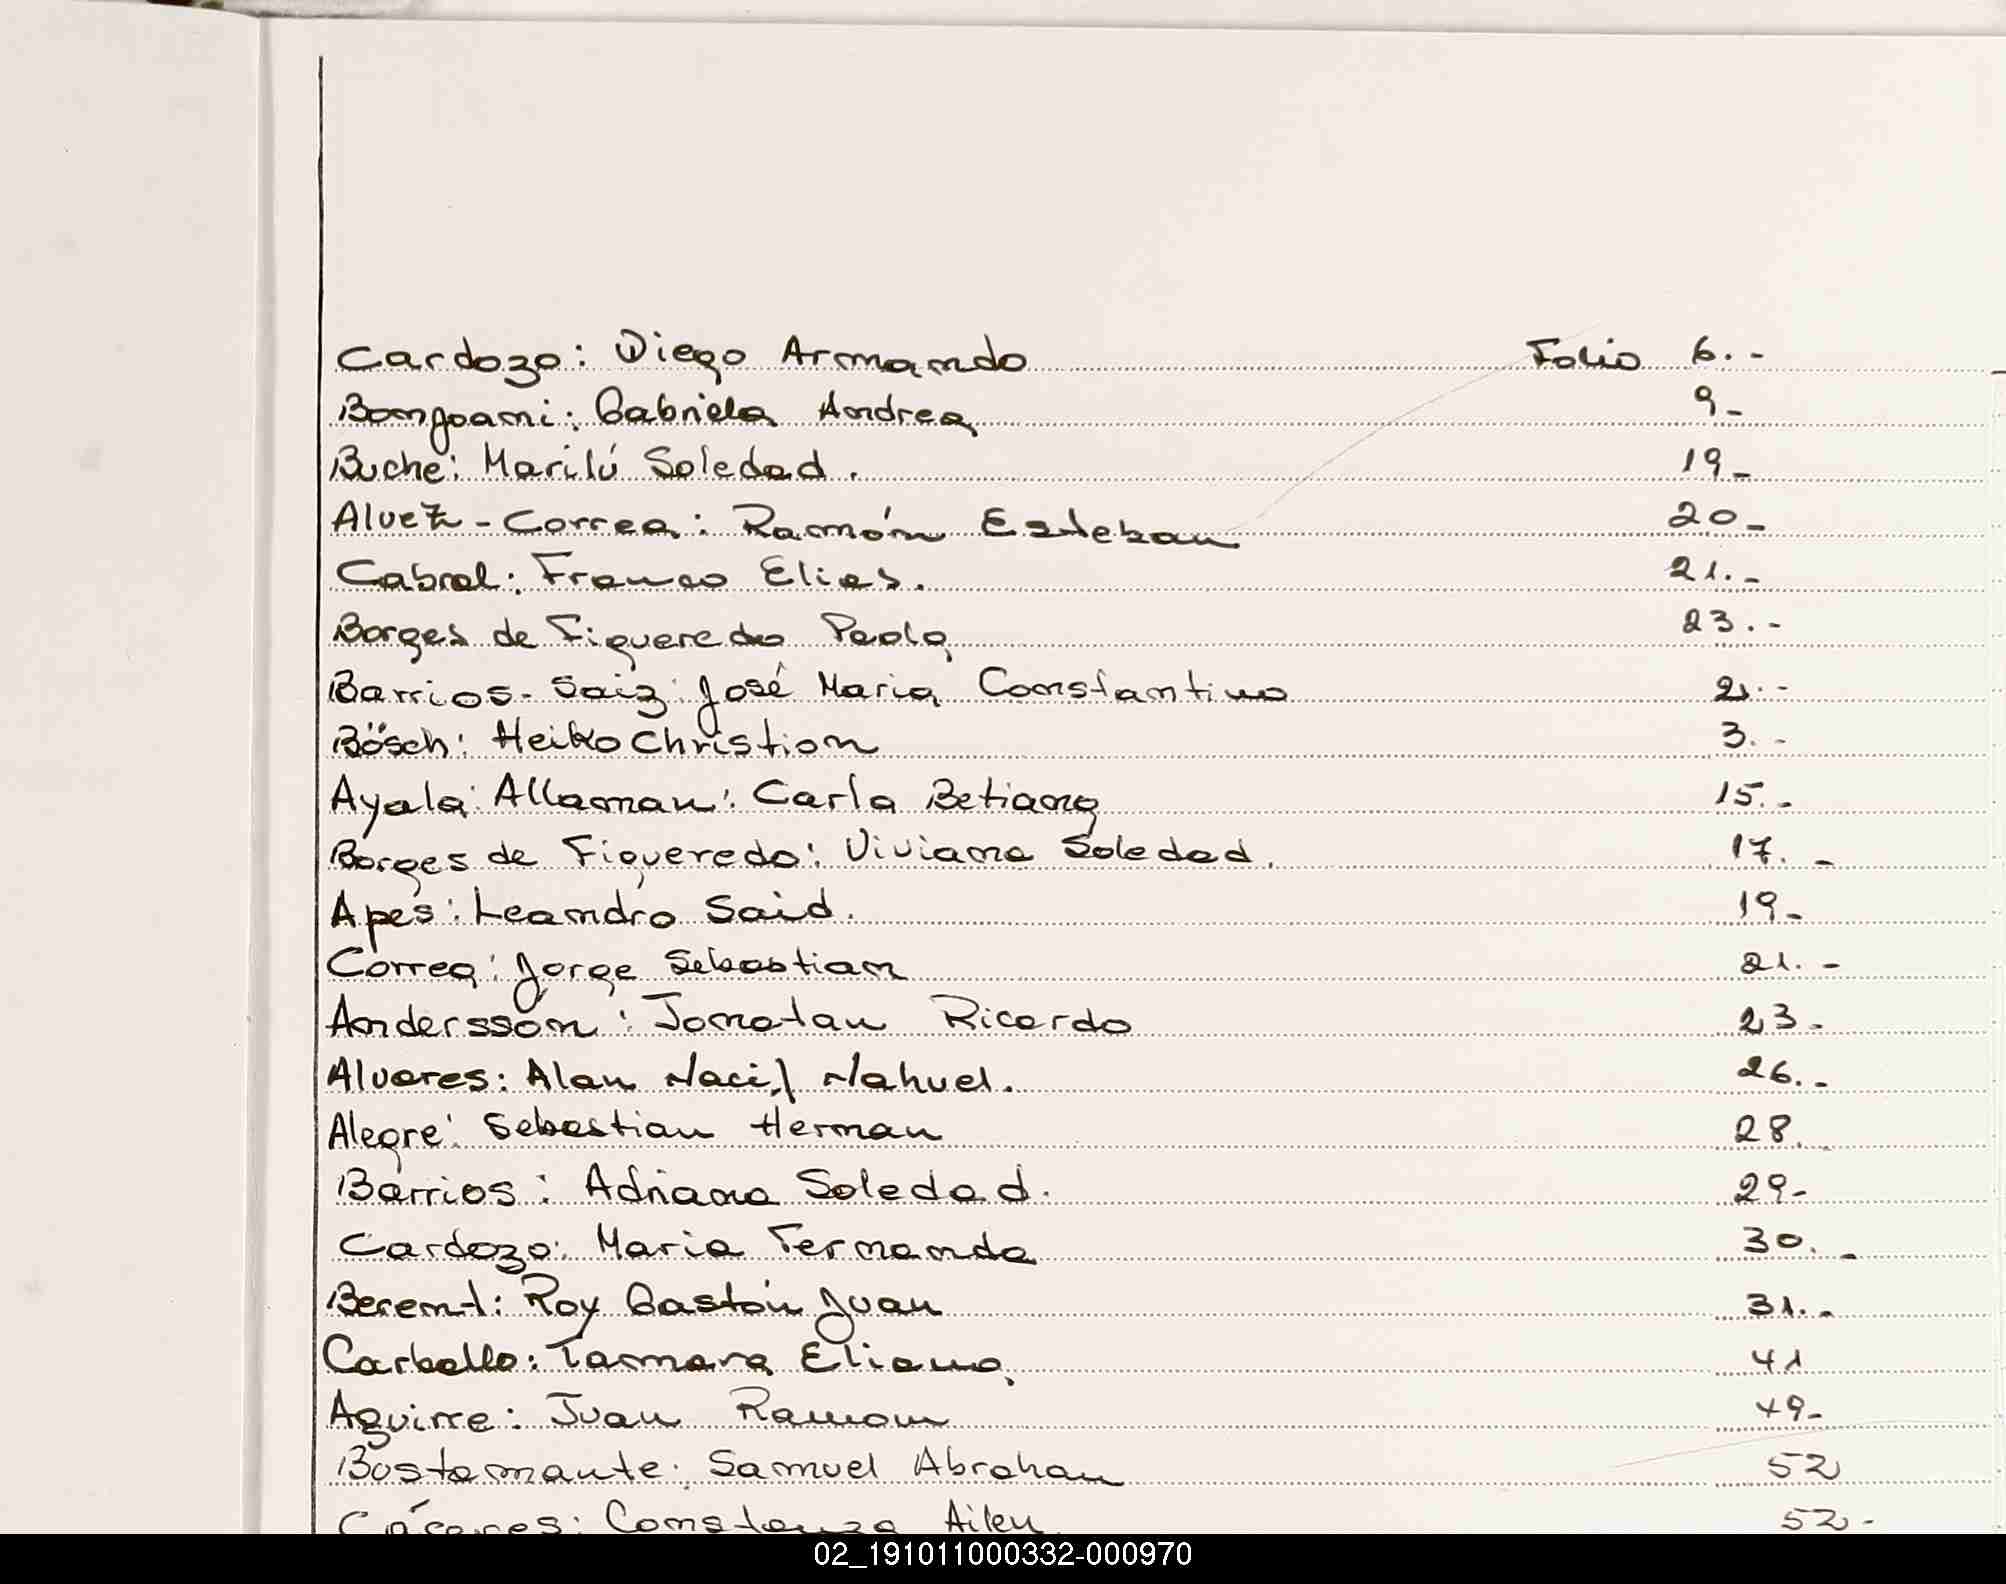 Cardozo: Diego Armando Folio 6.-
Bongoani: Gabriela Andrea 9-
Buche: Marilú Soledad. 19-
Alvez-Correa: Ramón Esteban 20-
Cabral: Franco Elias. 21.-
Borges de Figueredo Paola 23.-
Barrios-Saiz: José Maria Constantino 2.-
Bösch: Heiko Christian 3.-
Ayala: Allaman: Carla Betiana 15.-
Borges de Figueredo: Viviana Soledad. 17.-
Apes: Leandro Said. 19-
Correa: Jorge Sebastian 21.-
Andersson: Jonatan Ricardo 23.-
Alvares: Alan Nacil Nahuel. 26.-
Alegre: Sebastian Hernan 28.-
Barrios: Adriana Soledad. 29-
Cardozo: Maria Fernanda 30.-
Berent: Roy Gastón Juan 31.-
Carballo: Tamara Eliana. 41
Aguirre: Juan Ramon 49-
Bustamante: Samuel Abrahan 52
Cáceres: Constanza Ailen 52-
02_191011000332-000970